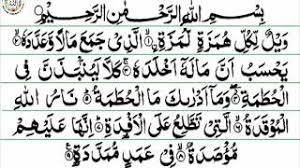 بِسْمِ اللهِ الرَّحْمٰنِ الرَّحِيْمِ
وَيْلٌ لِّكُلِّ هُمَزَةٍ لُّمَزَةٍ ۙ﴿۱﴾ الَّذِيْ جَمَعَ مَالًا وَّعَدَّدَهٗ ۙ﴿۲﴾
يَحْسَبُ اَنَّ مَالَهٗٓ اَخْلَدَهٗ ۚ﴿۳﴾ كَلَّا لَيُنْۢبَذَنَّ فِي
الْحُطَمَةِ ۖ﴿۴﴾ وَمَآ اَدْرٰىكَ مَا الْحُطَمَةُ ؕ﴿۵﴾ نَارُ اللهِ
الْمُوْقَدَةُ ۙ﴿۶﴾ الَّتِيْ تَطَّلِعُ عَلَى الْاَفْـِٕدَةِ ؕ﴿۷﴾ اِنَّهَا عَلَيْهِمْ
مُّؤْصَدَةٌ ۙ﴿۸﴾ فِيْ عَمَدٍ مُّمَدَّدَةٍ ﴿۹﴾